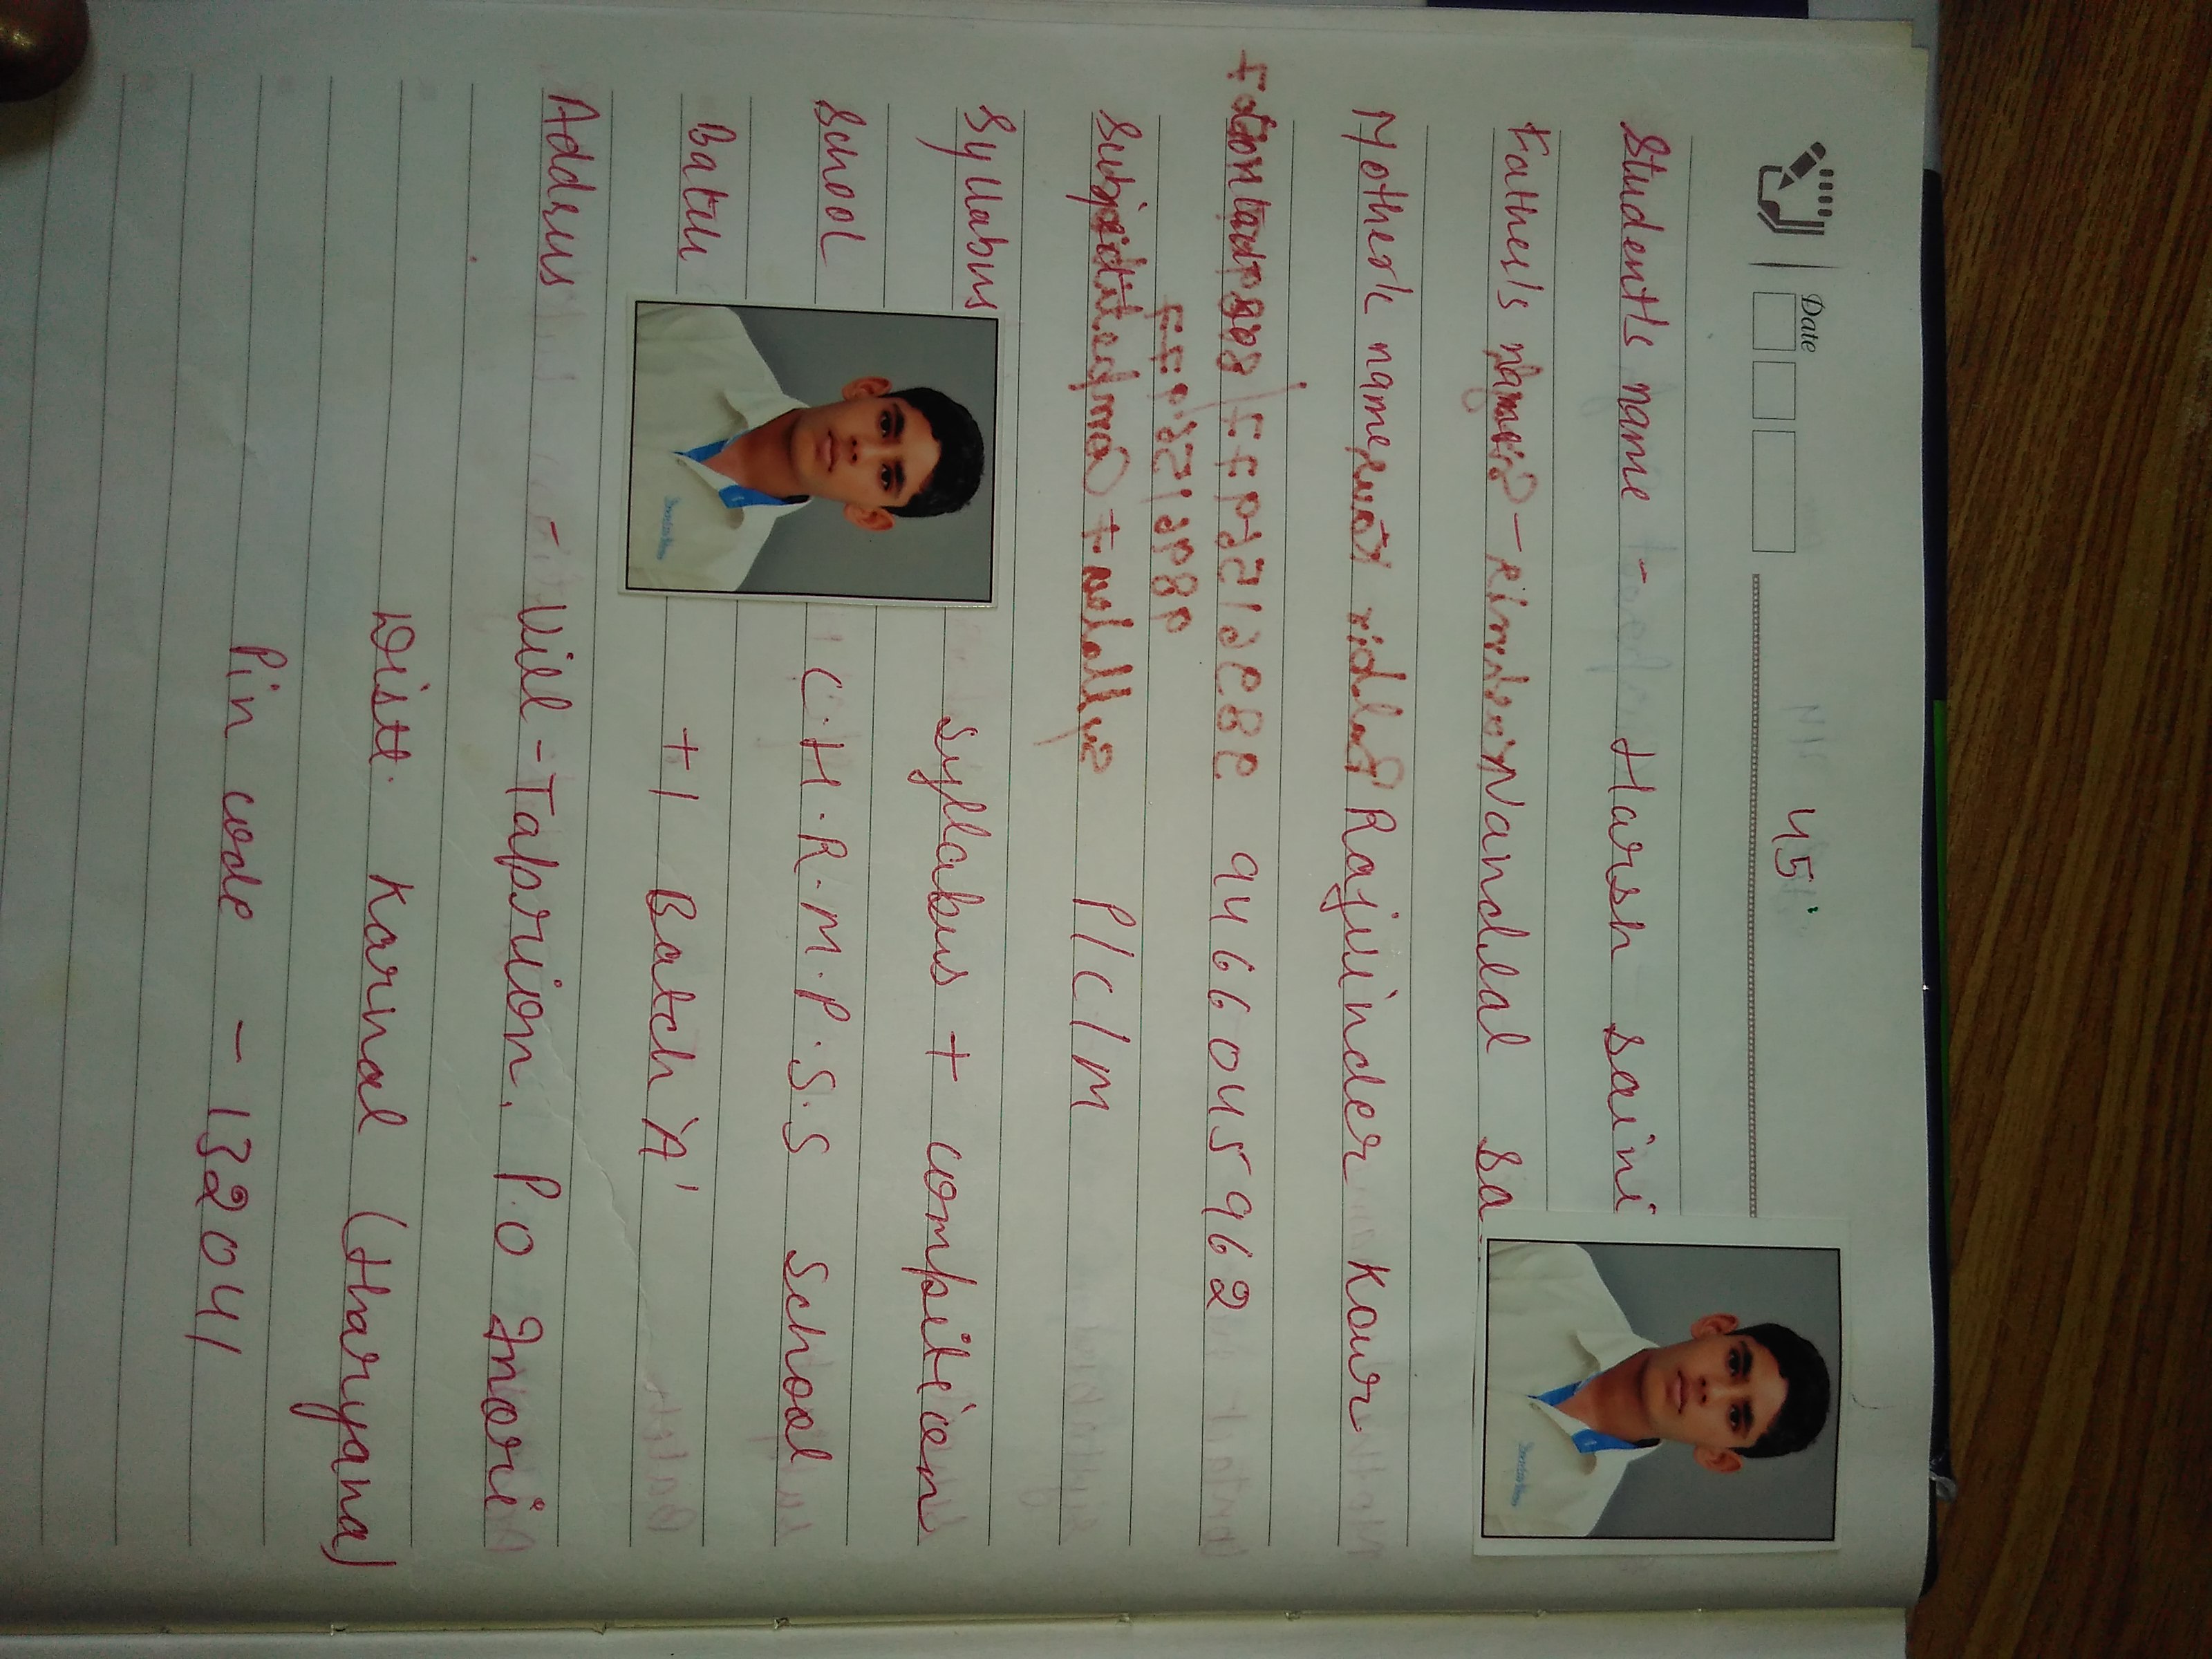 45
Date
Student's name Harsh Saini
Father's name Nandlal Sa
Mother's name Rajwinder Kaur
Contact no 9466045962
Subject P/C/M
Syllabus Syllabus + compitition
School C.H.R.M.P.S.S School
Batch +1 Batch 'A'
Address Vill - Taprion, P.O Inori
Distt. Karnal (Haryana)
Pin code - 132041